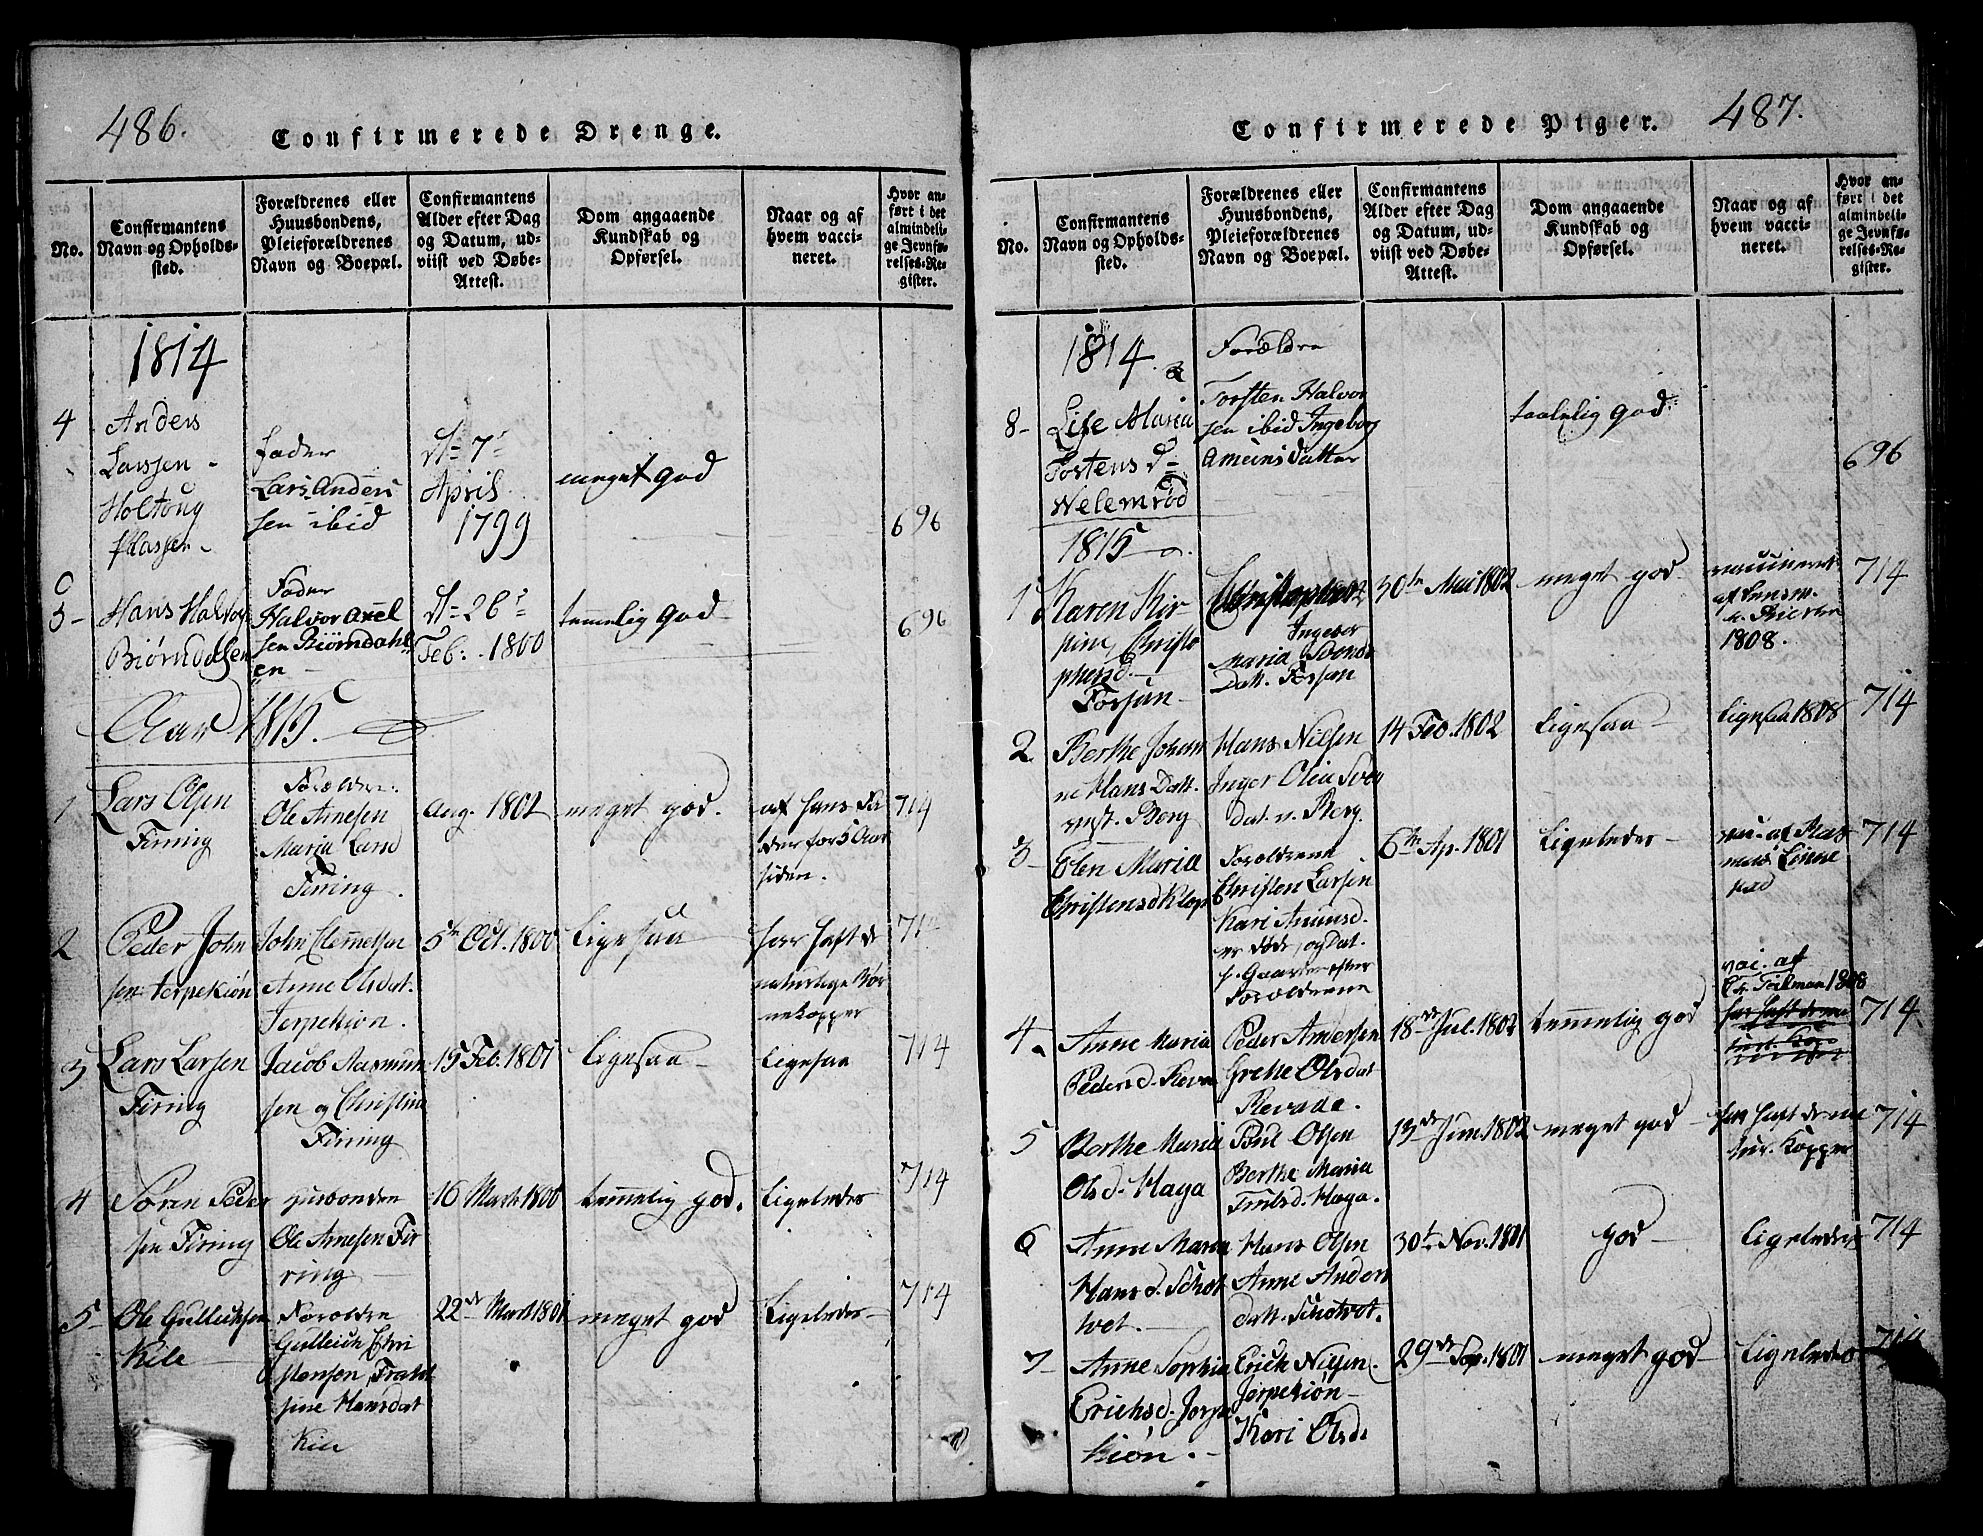 486.
Confirmerede Drenge.
No.
Confirmantens
Navn og Opholds-
sted.
Forældrenes eller
Huusbondens,
Pleieforældrenes
Navn og Boepæl.
Confirmantens
Alder efter Dag
og Datum, ud-
viist ved Døbe-
Attest.
Dom angaaende
Kundskab og
Opførsel.
Naar og af
hvem vacci-
neret.
Hvor an-
ført i det
almindeli-
ge Jevnfø-
relses-Re-
gister.
1814
4
Anders
Larssen
Holtoug
Plassen
Fader
Lars Anders
sen ibid
d. 7
April
1799
meget god
696
5
Hans Halvor
Biørndalsen
Fader
Halvor Axel
sen Biørndahl
en
d. 26
Feb: 1800
temmelig god
696
Aar 1815.
1
Lars Olsen
Firing
Forældre:
Ole Arnesen
Maria Lars
Firring
Aug. 1802
meget god.
af hans Fa
der for 5 Aar
siden.
714
2
Peder John
sen Jerpekiøn
John Clemetsen
Anne Olsdat.
Jerpekion.
5te Oct. 1800
ligesaa
har haft de
naturlige Bør
nekopper
714
3
Lars Larsen
Firing
Jacob Rasmun
sen og Christina
Firring
15 Feb. 1801
ligesaa
ligesaa
714
4
Søren Peder
sen Firing
Husbonden
Ole Arnesen Fir
ring
16 Mart. 1800
temmelig god.
ligeledes
714
5
Ole Gulliksen
Kile
Forældre
Gulleich Chri
stensen,
sine Hansdat
Kile
22de Mart 1801
meget god
ligeledes
714
Confirmerede Piger.
487.
No.
Confirmantens
Navn og Opholds-
sted.
Forældrenes eller
Huusbondens,
Pleieforældrenes
Navn og Boepæl.
Confirmantens
Alder efter Dag
og Datum, ud-
viist ved Døbe-
Attest.
Dom angaaende
Kundskab og
Opførsel.
Naar og af
hvem vacci-
neret.
Hvor an-
ført i det
almindeli-
ge Jevnfø-
relses-Re-
gister.
1814.
8
Lise Maria
Tostens d
Nelemrød
Forældre
Torsten Halvor
sen ibid Ingeborg
Ameins Datter
taalelig god
696
1815
1
Karen Kir
stine, Christo
phersd.
Forsan
Ingebor
Maria Svends
Datt. Forsan
30te Mai 1802
meget god
vaccineret
af
1808.
714
2.
Berthe Johan
ne Hans Datt.
vest. Berg
Hans Nilsen
Inger Olea Sven
dat. v. Berg.
14 Feb. 1802
ligesaa
ligesaa 1808
714
3
Elen Maria
Christensd Klop
Forældrene
Christen Larsen
Kari Amunsd.
er døde, og Dat.
p. Gaarden efter
Forældrene
6te Ap. 1801
ligeledes
vac. af Ras
mus Linne
stad
714
4.
Anne Maria
Pedersd. Reva
Peder Andersen
Grethe Olsdat
Revade.
18de Jul. 1802
temmelig god
vac. af
Tidman 1808
714
5
Berthe Maria
Olsd. Haga
Poul Olsen
Berthe Maria
Haga.
13de Juni 1802
meget god
har haft de na
tur. Kopper
714
6
Anne Maria
Hans d. Schot
vet.
Hans Olsen
Anne Anders
datt. Schotvet.
30te Nov. 1801
god
ligeledes
714
7
Anne Sophia
Erichsd. Jerpe
kiøn.
Erich Nilsen
Jerpekiøn
Kari Olsd.
29de Sep. 1801
meget god
ligeledes
714